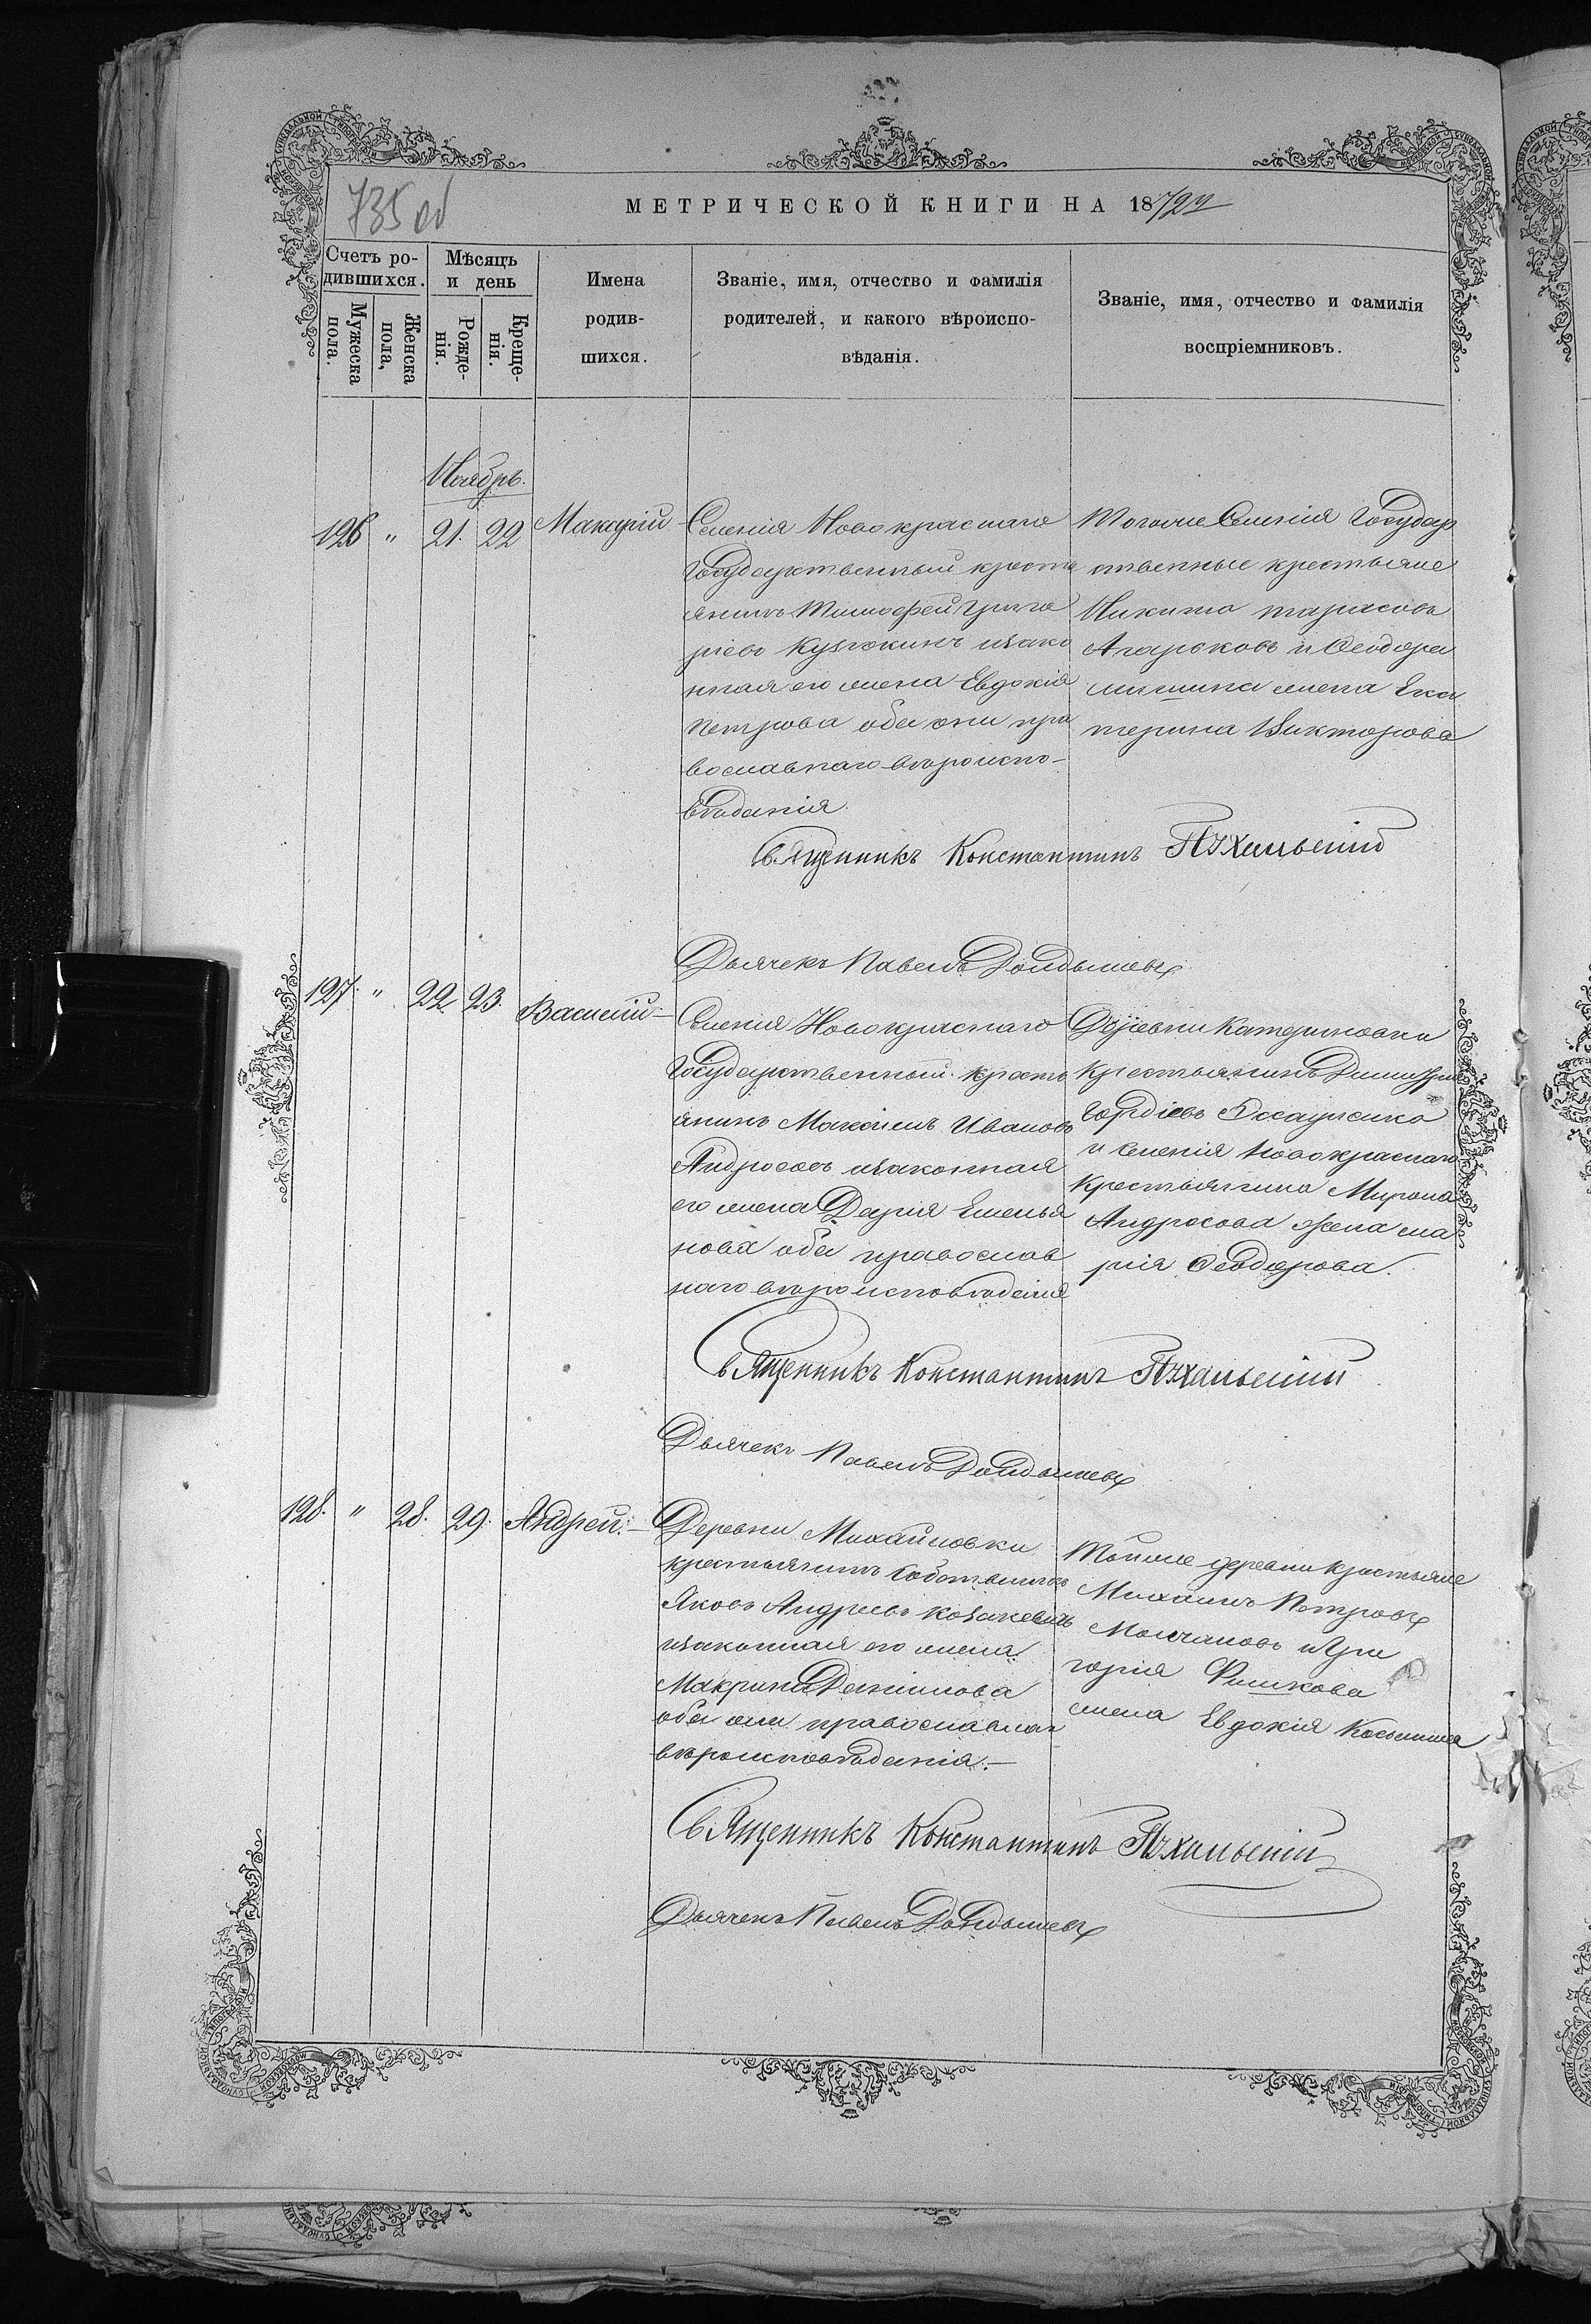 735 об
МЕТРИЧЕСКОЙ КНИГИ НА 1872й
Счетъ ро-
дившихся.
Мужеска
пола.
Женска
пола,
Мѣсяцъ
и день
Рожде-
нія.
Креще-
нія.
Имена
родив-
шихся.
Званіе, имя, отчество и фамилія
родителей, и какого вѣроиспо-
вѣданія.
Званіе, имя, отчество и фамилія
воспріемниковъ.
Ноябрь.
126 " 21. 22 Макарій
Селенія Новокраснаго
Государственный кресть
янинъ Тимофей Григо
ріевъ Кузюкинъ изако
нная его жена Евдокія
Петрова оба они пра
вославнаго вѣроиспо-
вѣданія.
Тогоже Селенія Государ
ственные крестьяне
Никита Тарасовъ
Агарковъ и Ѳеодора
жена Ека
терина Викторова
Священникъ Константинъ
Дьячекъ Павелъ
127. " 22. 23. Василій —
Селенія Новокраснаго
Государственный кресть
янинъ Максимъ Ивановъ
Андросовъ изаконная
его жена Дарія Емелья
нова оба православ
наго вѣроисповѣданія
Деревни Катериновки
Крестьянинъ Димитрій
Гордіевъ
и селенія Новокраснаго
Крестьянина Мирона
Андросова жена Ма
рія Ѳеодорова.
Священникъ Константинъ
Дьячекъ Павелъ
128. " 28. 29. Андрей. —
Деревни Михайловки
крестьянинъ собственникъ
Яковъ Андреевъ Козакевичъ
изаконная его жена
Макрина Даніилова
оба они православнаг
вѣроисповѣданія. —
Тойже деревни крестьяне
Михаилъ Петровъ
Молчановъ и Гри
горія Фишкова
жена Евдокія Космина
Священникъ Константинъ
Дьячекъ Павелъ